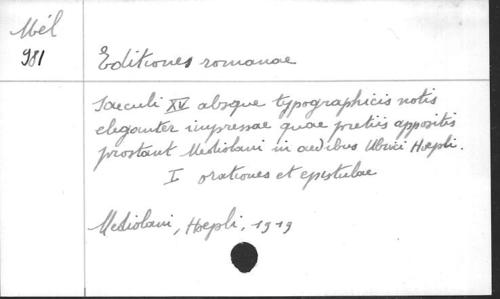 Mél
981
Editiones romanae
Saeculi XV absque typographicis notis
eleganter impressae quae pretiis appositis
prostant Mediolani in aedibus Ulrici Hoepli.
I orationes et epistulae
Mediolani, Hoepli, 1919